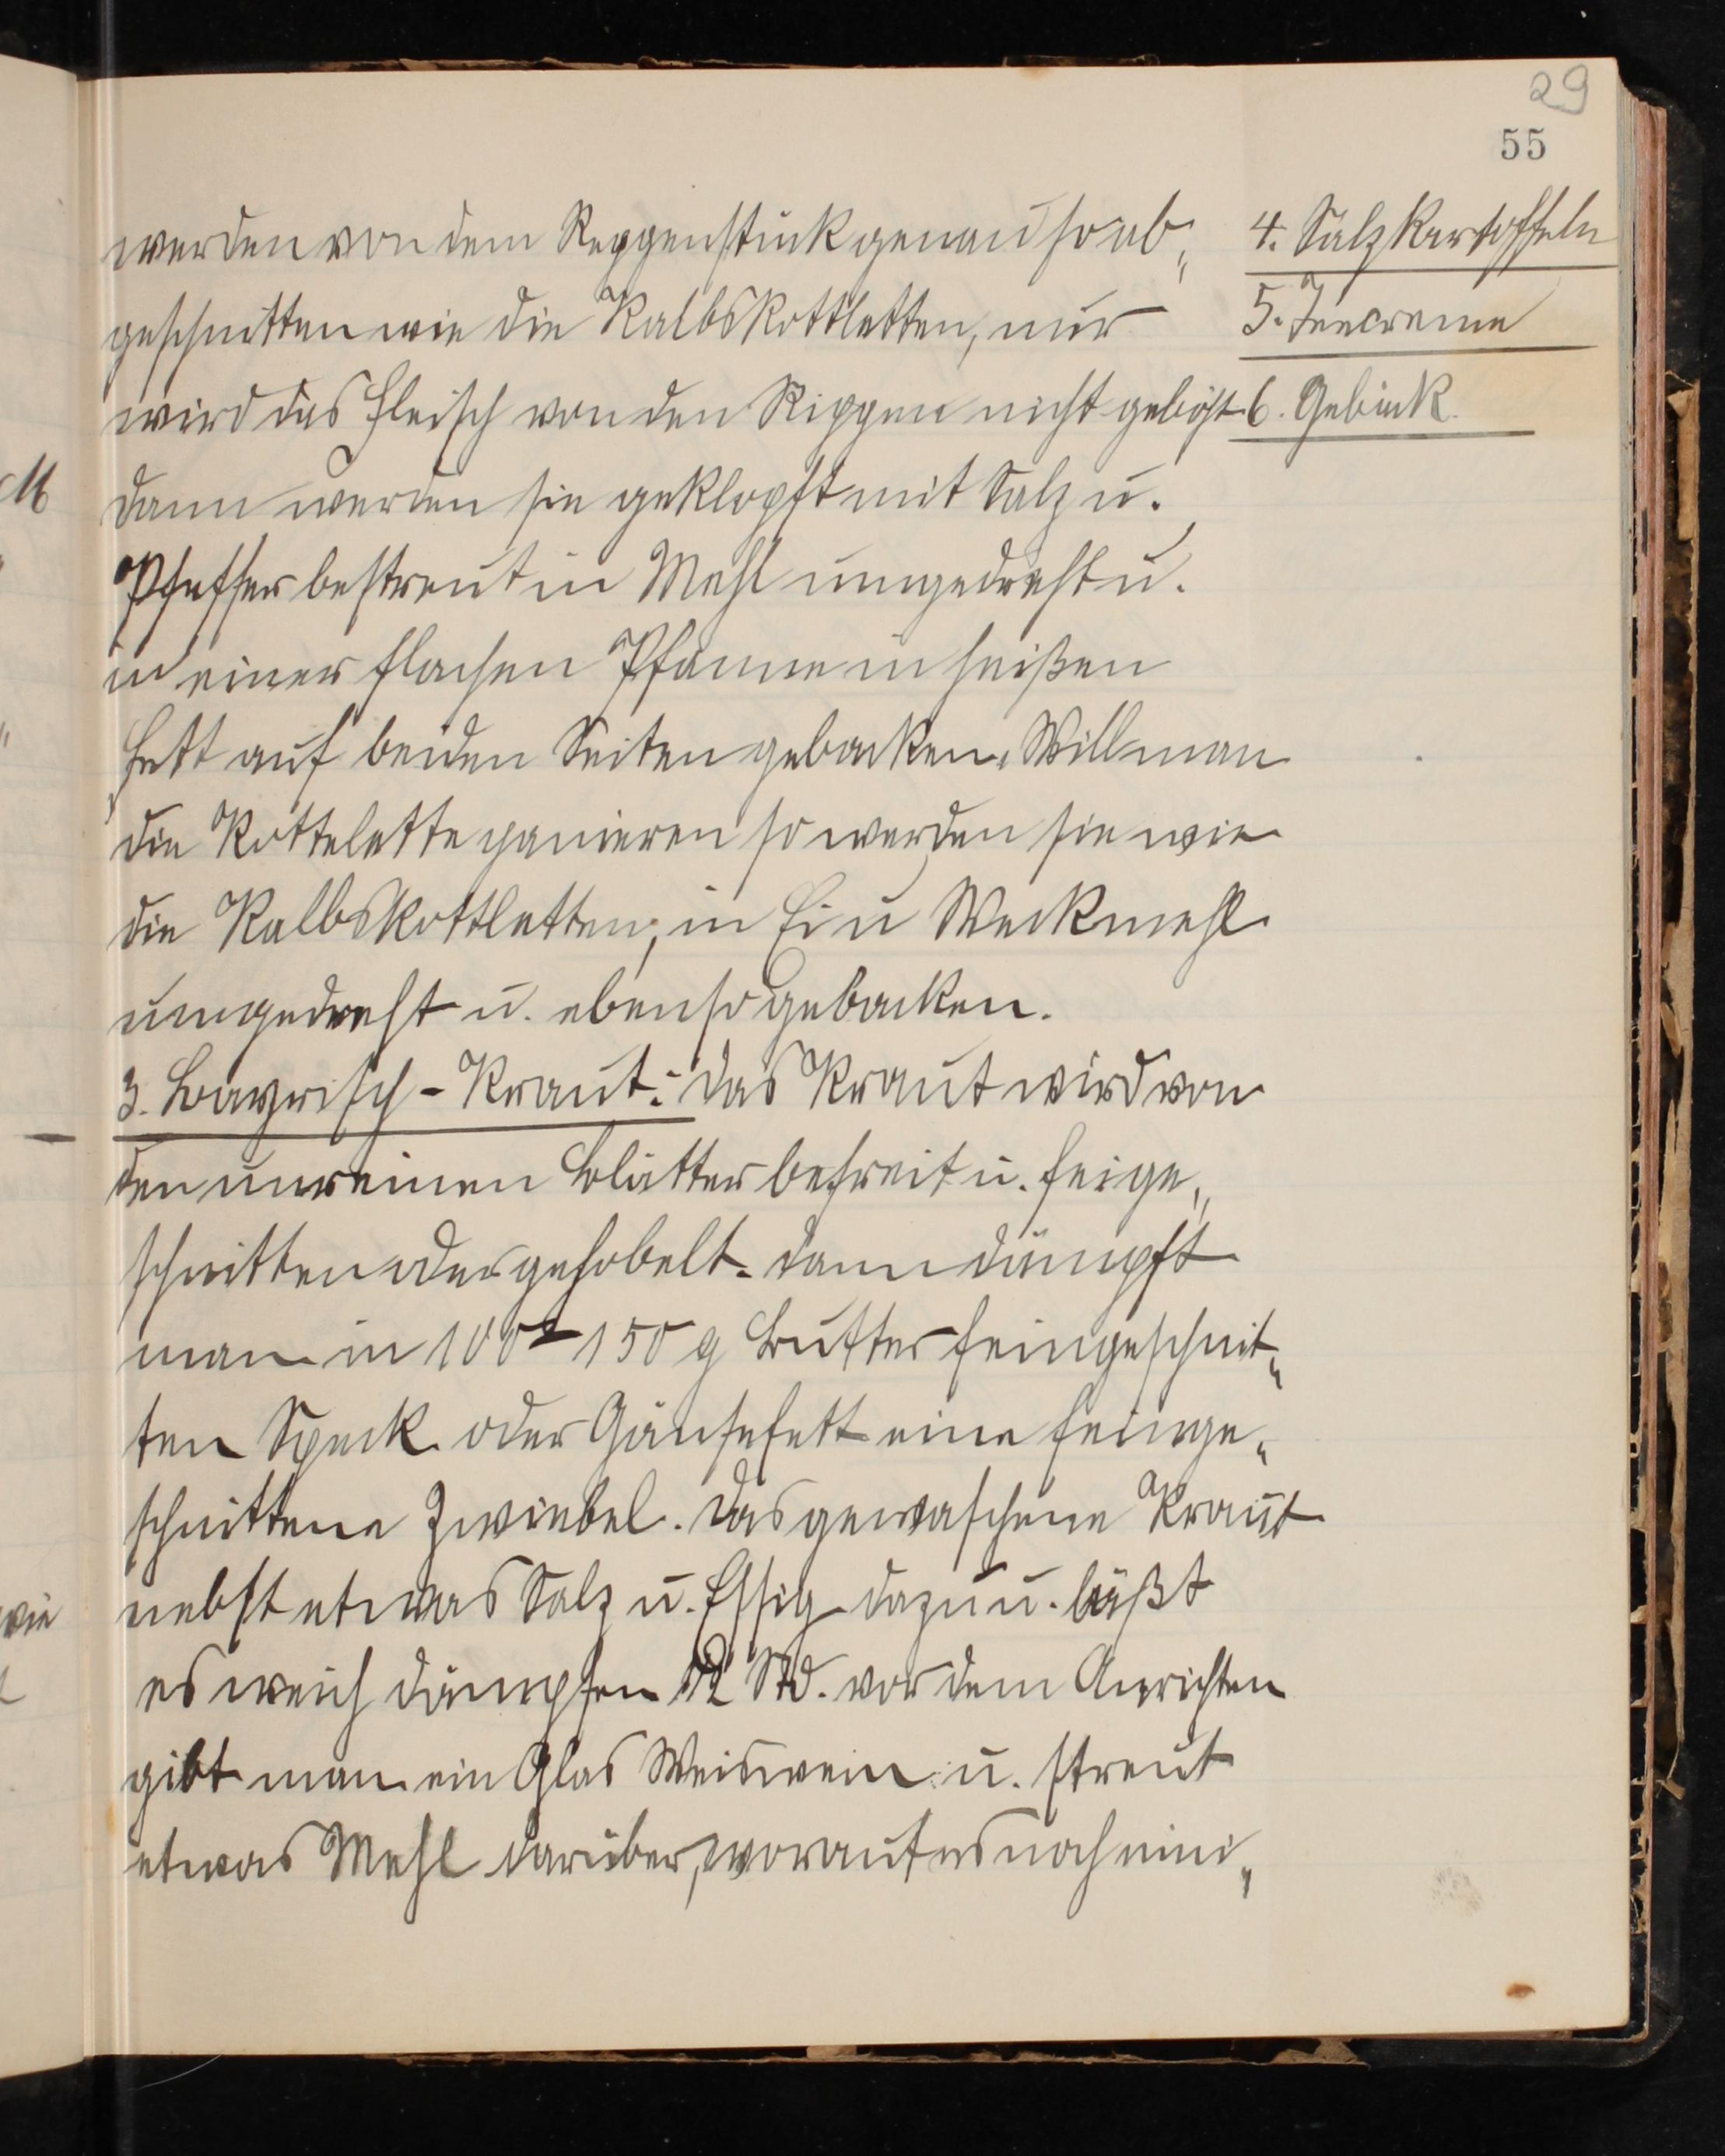 29
55
werden von dem Reppenstück genau so ab„
geschnitten wie die Kalbskottletten, nur
wird das Fleisch von den Rippen nicht gelöst.
dann werden sie geklopft mit Salz u.
Pfeffer bestreut in Mehl umgedreht u.
in einer flachen Pfanne in heißen
Fett auf beiden Seiten gebacken. Will man
die Kottelette panieren so werden sie wie
die Kalbskottletten, in Ei u Weckmehl
umgedreht u. ebenso gebacken.
3. Bayrisch-Kraut: das Kraut wird von
den unreinen Blätter befreit u. feige„
schnitten oder gehobelt. dann dämpft
man in 100-150 g Butter feingeschnit„
ten Speck oder Gänsefett eine feinge„
schnittene Zwiebel. das gewaschene Kraut
nebst etwas Salz u. Essig dazu u. läßt
es weich dämpfen 1/2 Std. vor dem Anrichten
gibt man ein Glas Weiswein u. streut
etwas Mehl darüber, worauf es noch eini„
4. Salzkartoffeln
5. Teecreme
6. Gebäck.
wie